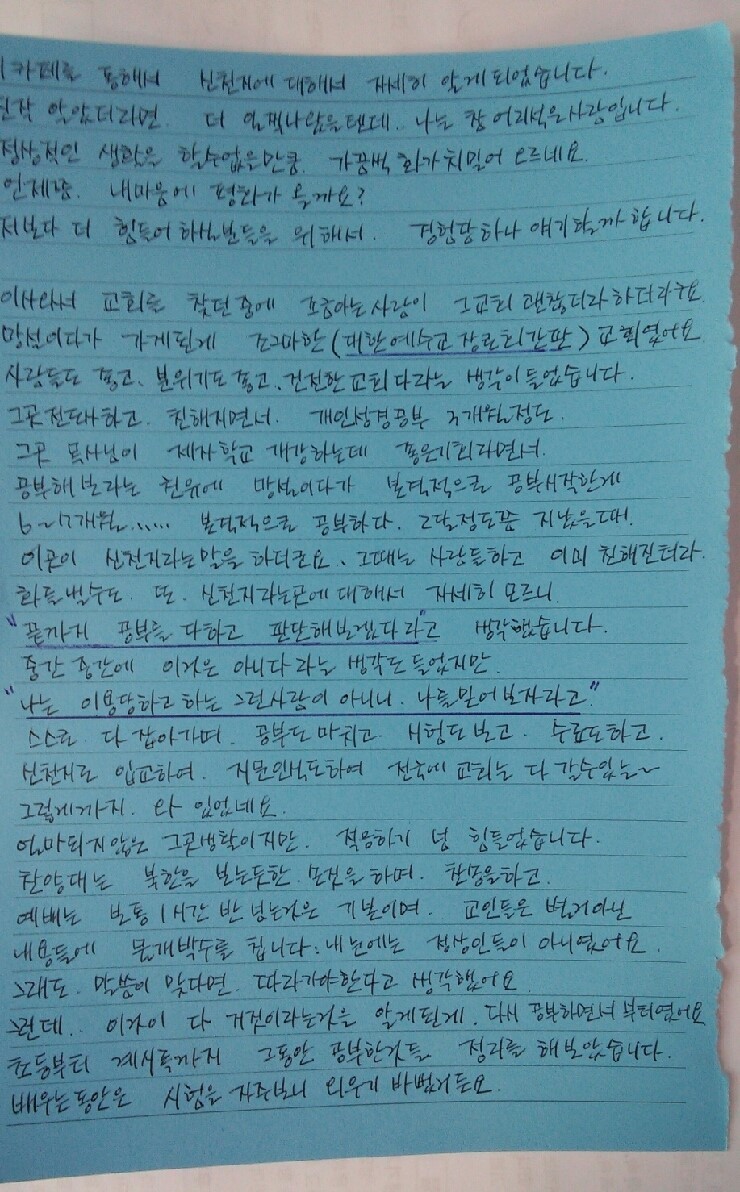 카페를 통해서 신천지에 대해서 자세히 알게되었습니다.
진작 알았더라면. 더 일찍나왔을텐데.. 나는 참 어리석은사람입니다.
정상적인 생활은 할수없을만큼. 가끔씩 화가치밀어 오르네요.
언제쯤. 내마음에 평화가 올까요?
저보다 더 힘들어 하실분들을 위해서. 경험담하나 얘기할까 합니다.
이사와서 교회를 찾던중에 조금아는사람이 그교회 괜찮더라하더라구요
망설이다가 가게된게 조그마한 (대한예수교 장로회간판) 교회였어요
사람들도 좋고. 분위기도 좋고. 건전한 교회다라는 생각이들었습니다.
그곳전도사하고. 친해지면서. 개인성경공부 3개월정도.
그곳 목사님이 제자학교 개강하는데 좋은기회라면서.
공부해보라는 권유에 망설이다가 본격적으로 공부시작한게
6~7개월...... 본격적으로 공부하다. 2달정도쯤 지났을때.
이곳이 신천지라는말을 하더군요. 그때는 사람들하고 이미 친해진터라.
화를낼수도. 또. 신천지라는곳에 대해서 자세히 모르니
"끝까지 공부를 다하고 판단해보겠다라"고 생각했습니다.
중간 중간에 이것은 아니다 라는 생각도 들었지만.
"나는 이용당하고 하는 그런사람이 아니니. 나를믿어보자라고"
스스로 다 잡아가며. 공부도 마치고. 시험도 보고. 수료도하고.
신천지로 입교하여. 지문인식도하여 전국에 교회는 다 갈수있는~
그렇게까지. 와 있었네요.
얼마되지않은 그곳생활이지만. 적응하기 넘 힘들었습니다.
찬양대는 북한을 보는듯한 모짓을 하며. 찬양을하고.
예배는 보통 1시간 반 넘는것은 기본이며. 교인들은 별거아닌
내용들에 물개박수를 칩니다. 내눈에는 정상인들이 아니였어요.
그래도. 말씀이 맞다면. 따라가야한다고 생각했어요
그런데.. 이것이 다 거짓이라는것을 알게된게. 다시 공부하면서 부터였어요
초등부터 계시록까지 그동안 공부한것들 정리를 해보았습니다.
배우는동안은 시험을 자주보니 외우기 바빴거든요.